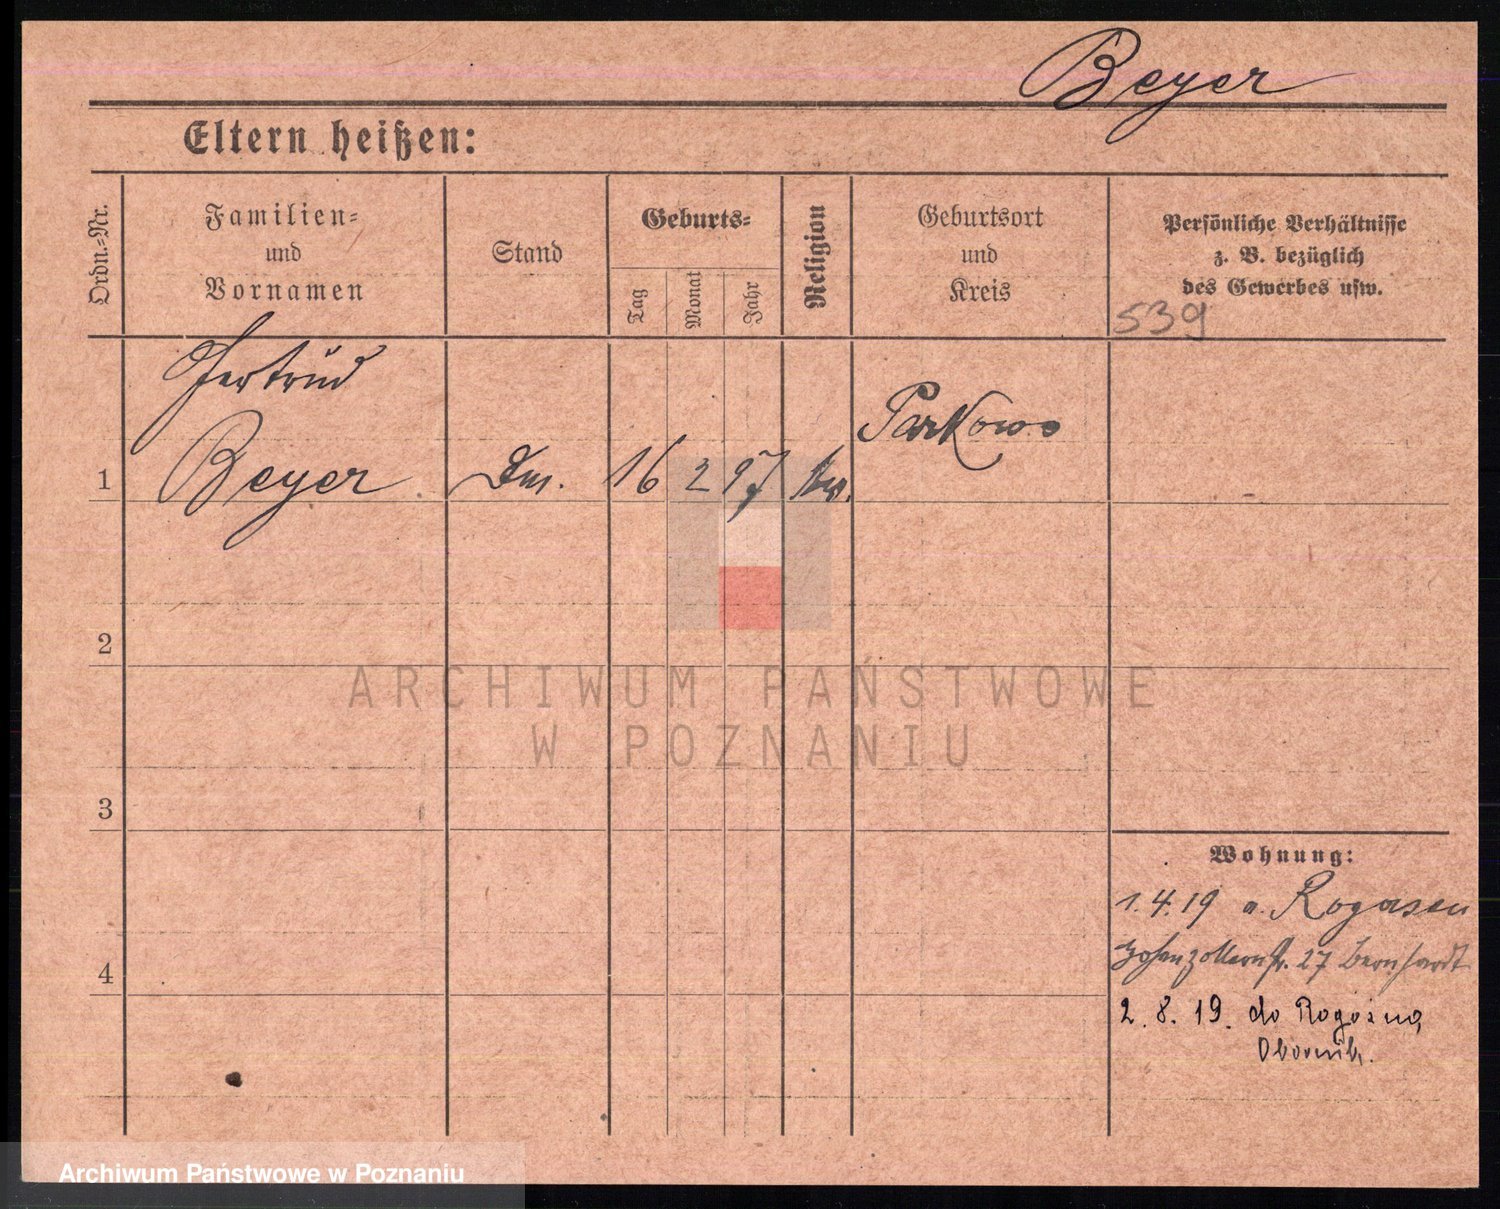 Beyer
Eltern heißen:
Ordn.-Nr.
Familien-
und
Vornamen
Stand
Geburts-
Tag
Monat
Jahr
Religion
Geburtsort
und
Kreis
Persönliche Verhältnisse
z. B. bezüglich
des Gewerbes usw.
539
Gertrud
Beyer
1
16
2
97
Parkowo
2
3
4
Wohnung:
1.4.19 a. Rogasen
Hohenzollernstr. 27 Bernhardt
2. 8. 19. do Rogoźna
Obornik.
ARCHIWUM PAŃSTWOWE
W POZNANIU
Archiwum Państwowe w Poznaniu